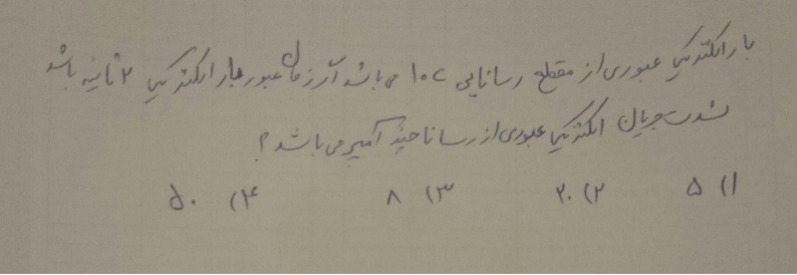 بار الکتریکی عبوری از مقطع رسانایی ۱۰c می باشد اگر زمان عبور بار الکتریکی ۲ ثانیه باشد
شدت جریان الکتریکی عبوری از رسانا چند آمپر می باشد ؟
۱) ۵ ۲) ۲۰ ۳) ۸ ۴) ۵۰